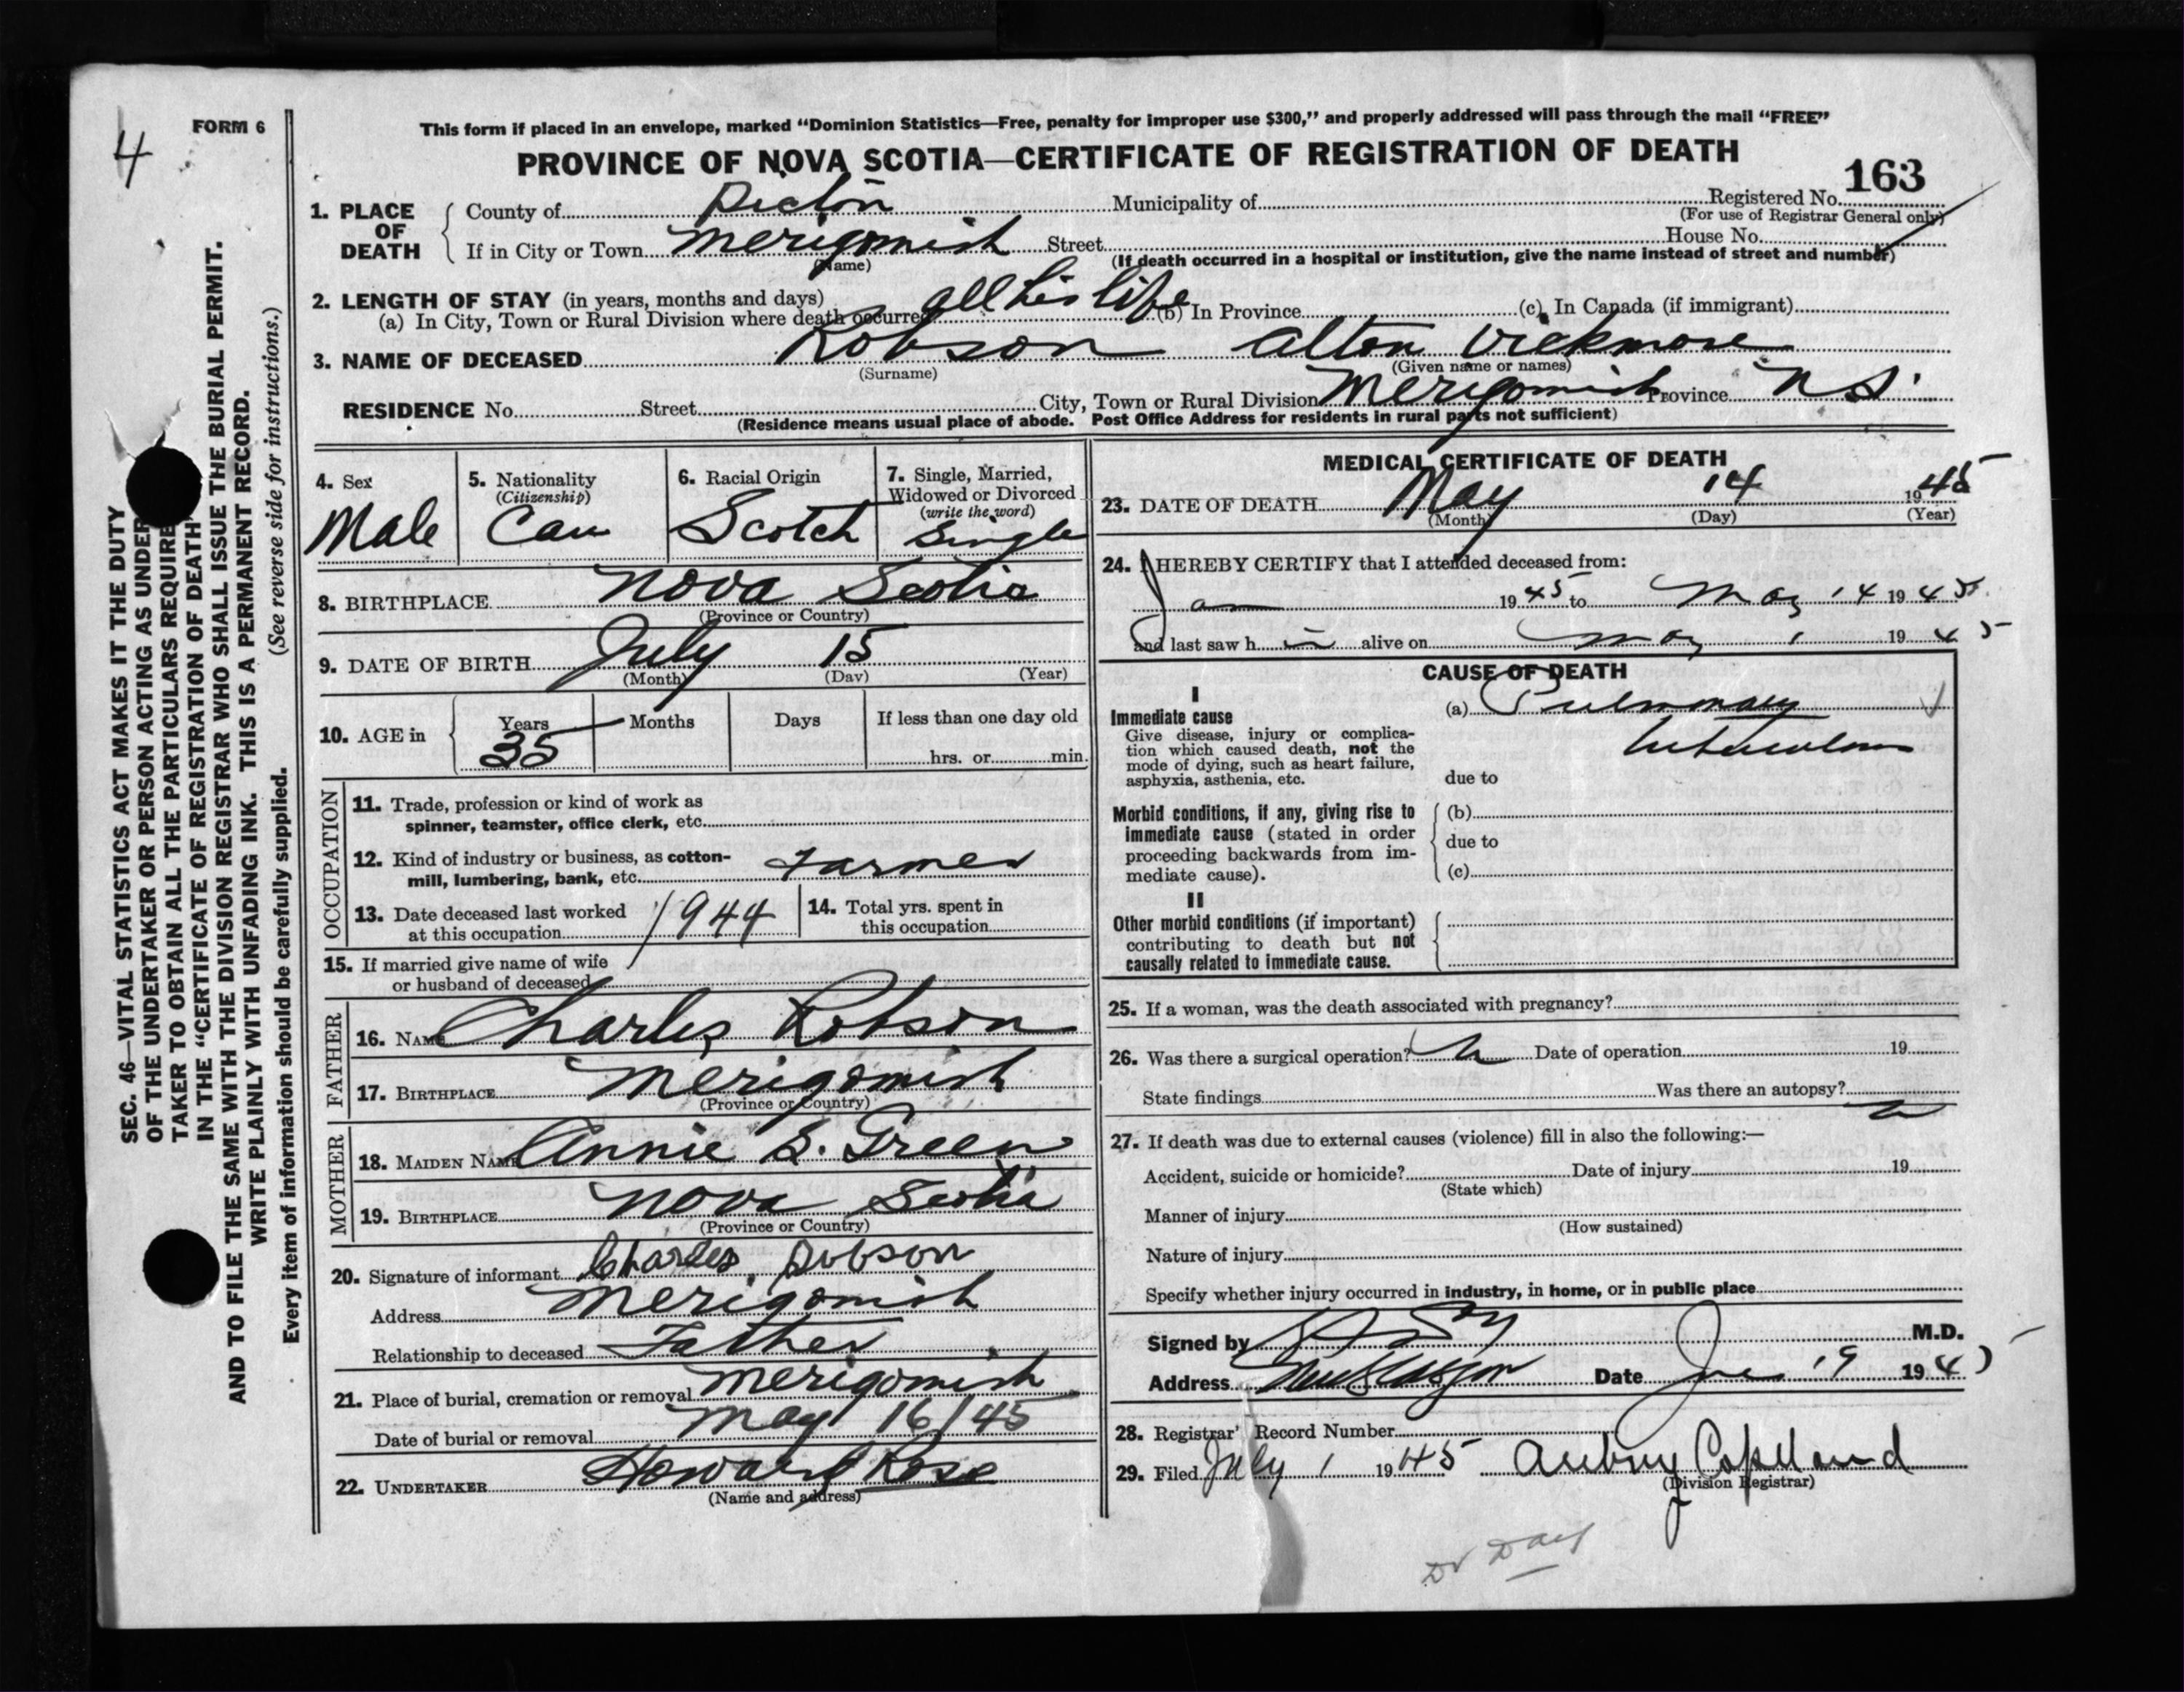 4
FORM 6
This form if placed in an envelope, marked “Dominion Statistics—Free, penalty for improper use $300,” and properly addressed will pass through the mail “FREE”
PROVINCE OF NOVA SCOTIA—CERTIFICATE OF REGISTRATION OF DEATH
163
1. PLACE OF DEATH
County of Pictou Municipality of Registered No.
(For use of Registrar General only)
If in City or Town Merigomish Street House No.
(Name) (If death occurred in a hospital or institution, give the name instead of street and number)
2. LENGTH OF STAY (in years, months and days)
(a) In City, Town or Rural Division where death occurred all his life (b) In Province (c) In Canada (if immigrant)
3. NAME OF DECEASED Robson Alton Vickmore
(Surname) (Given name or names)
RESIDENCE No. Street City, Town or Rural Division Merigomish Province N S.
(Residence means usual place of abode. Post Office Address for residents in rural parts not sufficient)
4. Sex
Male
5. Nationality
(Citizenship)
Can
6. Racial Origin
Scotch
7. Single, Married,
Widowed or Divorced
(write the word)
Single
8. BIRTHPLACE Nova Scotia
(Province or Country)
9. DATE OF BIRTH July 15
(Month) (Day) (Year)
10. AGE in
Years Months Days If less than one day old
35 hrs. or min.
OCCUPATION
11. Trade, profession or kind of work as
spinner, teamster, office clerk, etc.
12. Kind of industry or business, as cotton-
mill, lumbering, bank, etc. Farmer
13. Date deceased last worked
at this occupation 1944
14. Total yrs. spent in
this occupation
15. If married give name of wife
or husband of deceased
FATHER
16. NAME Charles Robson
17. BIRTHPLACE Merigomish
(Province or Country)
MOTHER
18. MAIDEN NAME Annie S. Green
19. BIRTHPLACE Nova Scotia
(Province or Country)
20. Signature of informant Charles Robson
Address Merigomish
Relationship to deceased Father
21. Place of burial, cremation or removal Merigomish
Date of burial or removal May 16/45
22. UNDERTAKER Howard Rose
(Name and address)
MEDICAL CERTIFICATE OF DEATH
23. DATE OF DEATH May 14 1945
(Month) (Day) (Year)
24. I HEREBY CERTIFY that I attended deceased from:
Jan 1945 to May 14 1945
and last saw h im alive on May 1 1945
CAUSE OF DEATH
I
Immediate cause
Give disease, injury or complica-
tion which caused death, not the
mode of dying, such as heart failure,
asphyxia, asthenia, etc.
(a) Pulmonary
tuberculosis
due to
Morbid conditions, if any, giving rise to
immediate cause (stated in order
proceeding backwards from im-
mediate cause).
(b)
due to
(c)
II
Other morbid conditions (if important)
contributing to death but not
causally related to immediate cause.
25. If a woman, was the death associated with pregnancy?
26. Was there a surgical operation? No Date of operation 19
State findings Was there an autopsy?
No
27. If death was due to external causes (violence) fill in also the following:—
Accident, suicide or homicide? Date of injury 19
(State which)
Manner of injury
(How sustained)
Nature of injury
Specify whether injury occurred in industry, in home, or in public place
Signed by M.D.
Address New Glasgow Date June 19 1945
28. Registrar' Record Number
29. Filed July 1 1945 Aubrey Copeland
(Division Registrar)
Dr Day
SEC. 46—VITAL STATISTICS ACT MAKES IT THE DUTY
OF THE UNDERTAKER OR PERSON ACTING AS UNDER
TAKER TO OBTAIN ALL THE PARTICULARS REQUIRE
IN THE “CERTIFICATE OF REGISTRATION OF DEATH”
AND TO FILE THE SAME WITH THE DIVISION REGISTRAR WHO SHALL ISSUE THE BURIAL PERMIT.
WRITE PLAINLY WITH UNFADING INK. THIS IS A PERMANENT RECORD.
Every item of information should be carefully supplied. (See reverse side for instructions.)